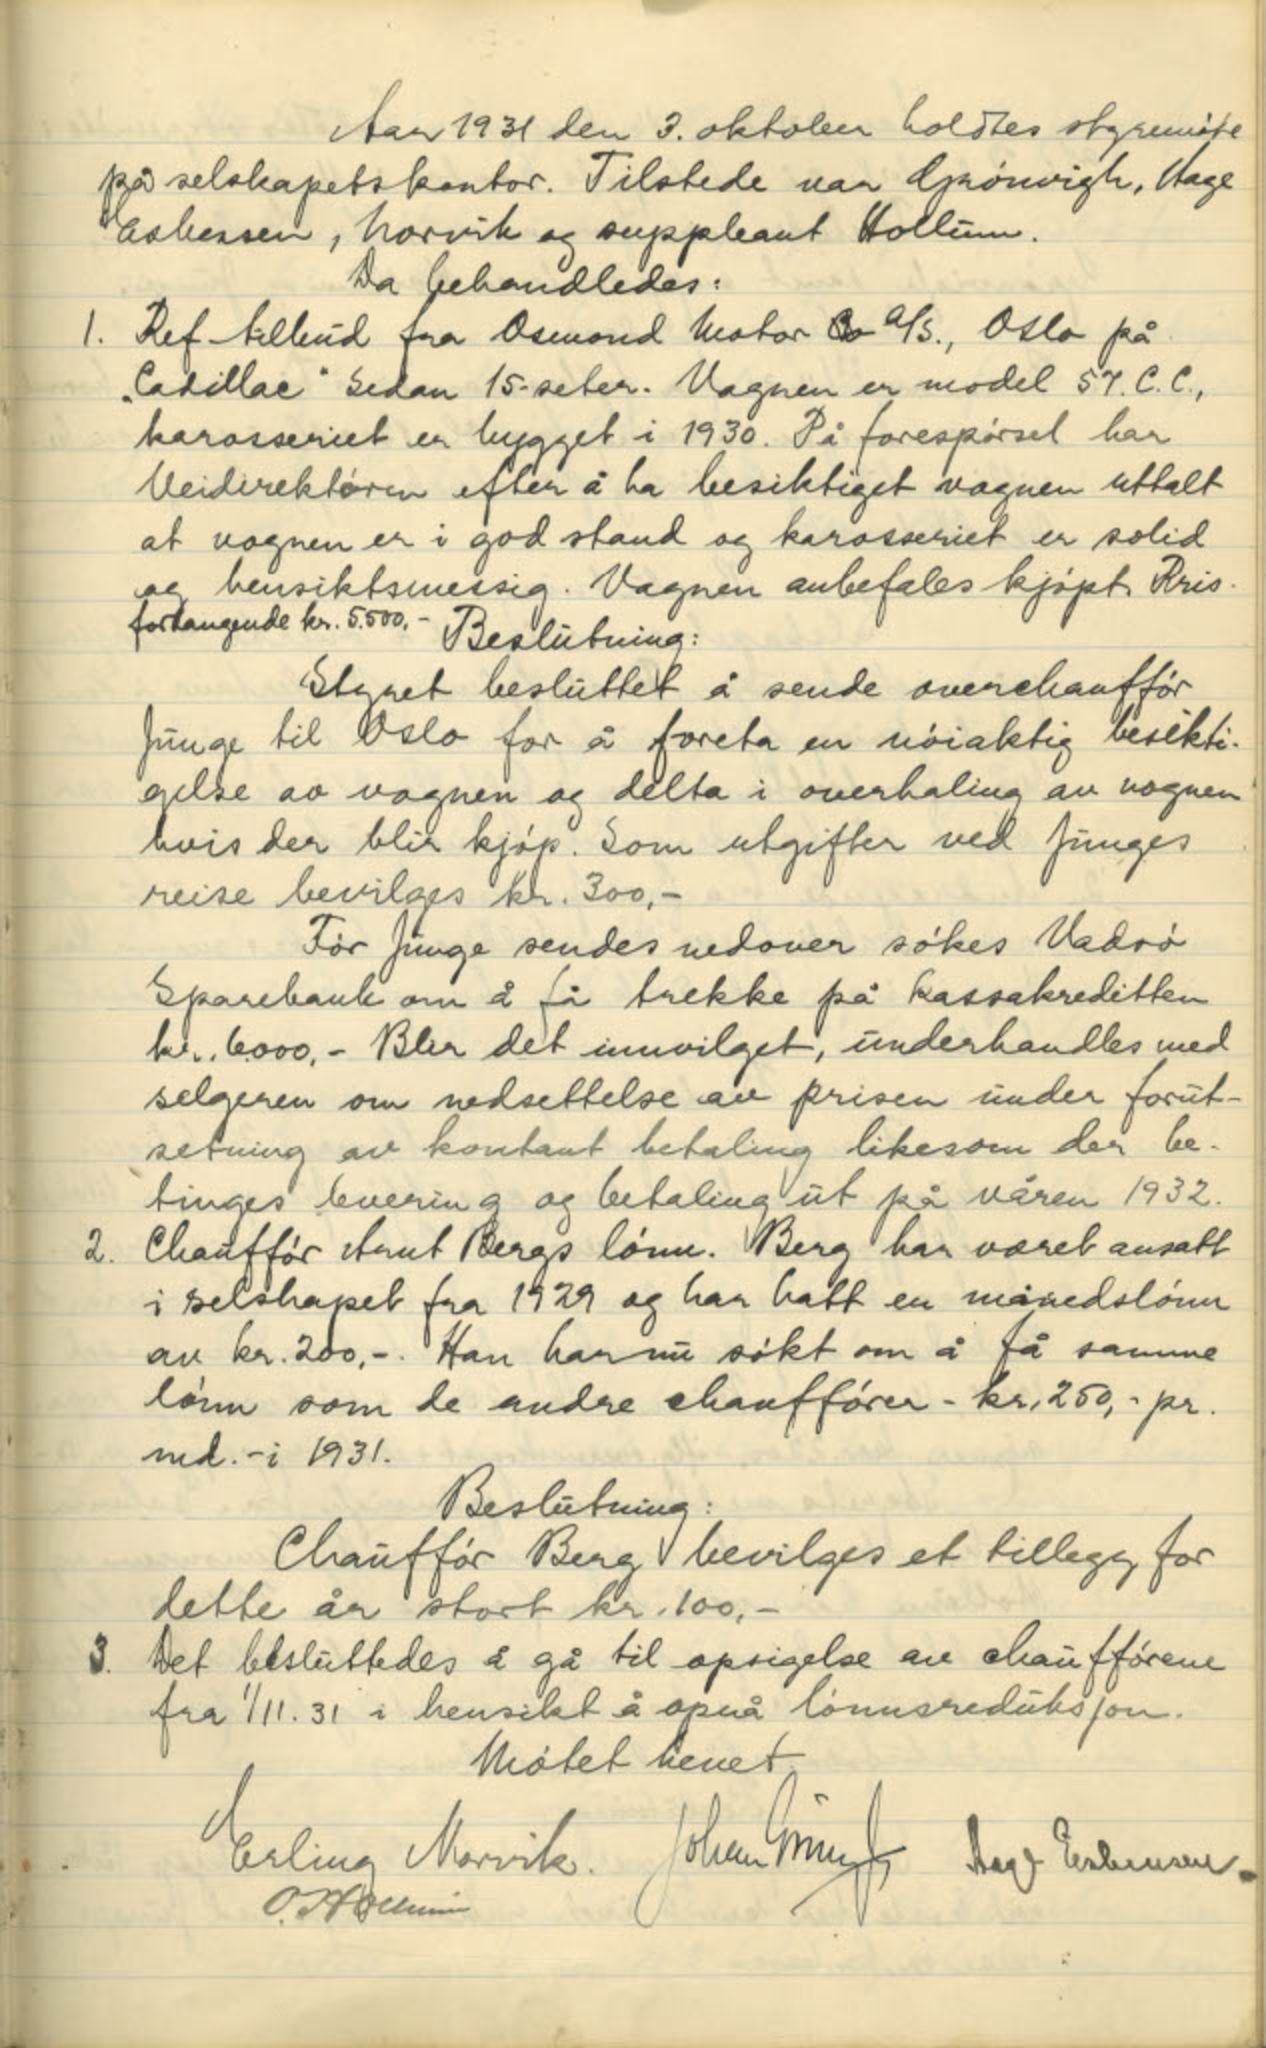 Aar 1931 den 3. oktober holdtes styremøte
på selskapets kontor. Tilstede var Grönvigh, Aage
Esbensen, Morvik og suppleant Hollum.
Da behandledes:
1. Ref tilbud fra Osmond Motor Co A/S., Oslo på
"Cadillac" Sedan 15-seter. Vagnen er model 57. C.C.,
karosseriet er bygget i 1930. På forespörsel har
Veidirektören efter å ha besiktiget vognen uttalt
at vognen er i god stand og karosseriet er solid
og hensiktsmessig. Vagnen anbefales kjöpt. Pris-
forlangende kr. 5.500,-
Beslutning:
Styret besluttet å sende overchaufför
Junge til Oslo for å foreta en nöiaktig besikti-
gelse av vognen og delta i overhaling av vognen
hvis der blir kjöp. Som utgifter ved Junges
reise bevilges kr. 300,-
För Junge sendes nedover sökes Vadsö
Sparebank om å få trekke på kassakreditten
kr. 6.000,- Blir det innvilget, underhandles med
selgeren om nedsettelse av prisen under forut-
setning av kontant betaling likesom der be-
tinges levering og betaling ut på våren 1932.
2. Chaufför Arnt Bergs lönn. Berg har været ansatt
i selskapet fra 1929 og har hatt en månedslönn
av kr. 200,-. Han har nu sökt om å få samme
lönn som de andre chaufförer - kr. 250,- pr.
md. - i 1931.
Beslutning:
Chaufför Berg bevilges et tillegg for
dette år stort kr. 100,-
3. Det besluttedes å gå til opsigelse av chaufförene
fra 1/11.31 i hensikt å opnå lönnsreduksjon.
Mötet hevet
Erling Morvik. Johan Aage Esbensen.
O. Hollum